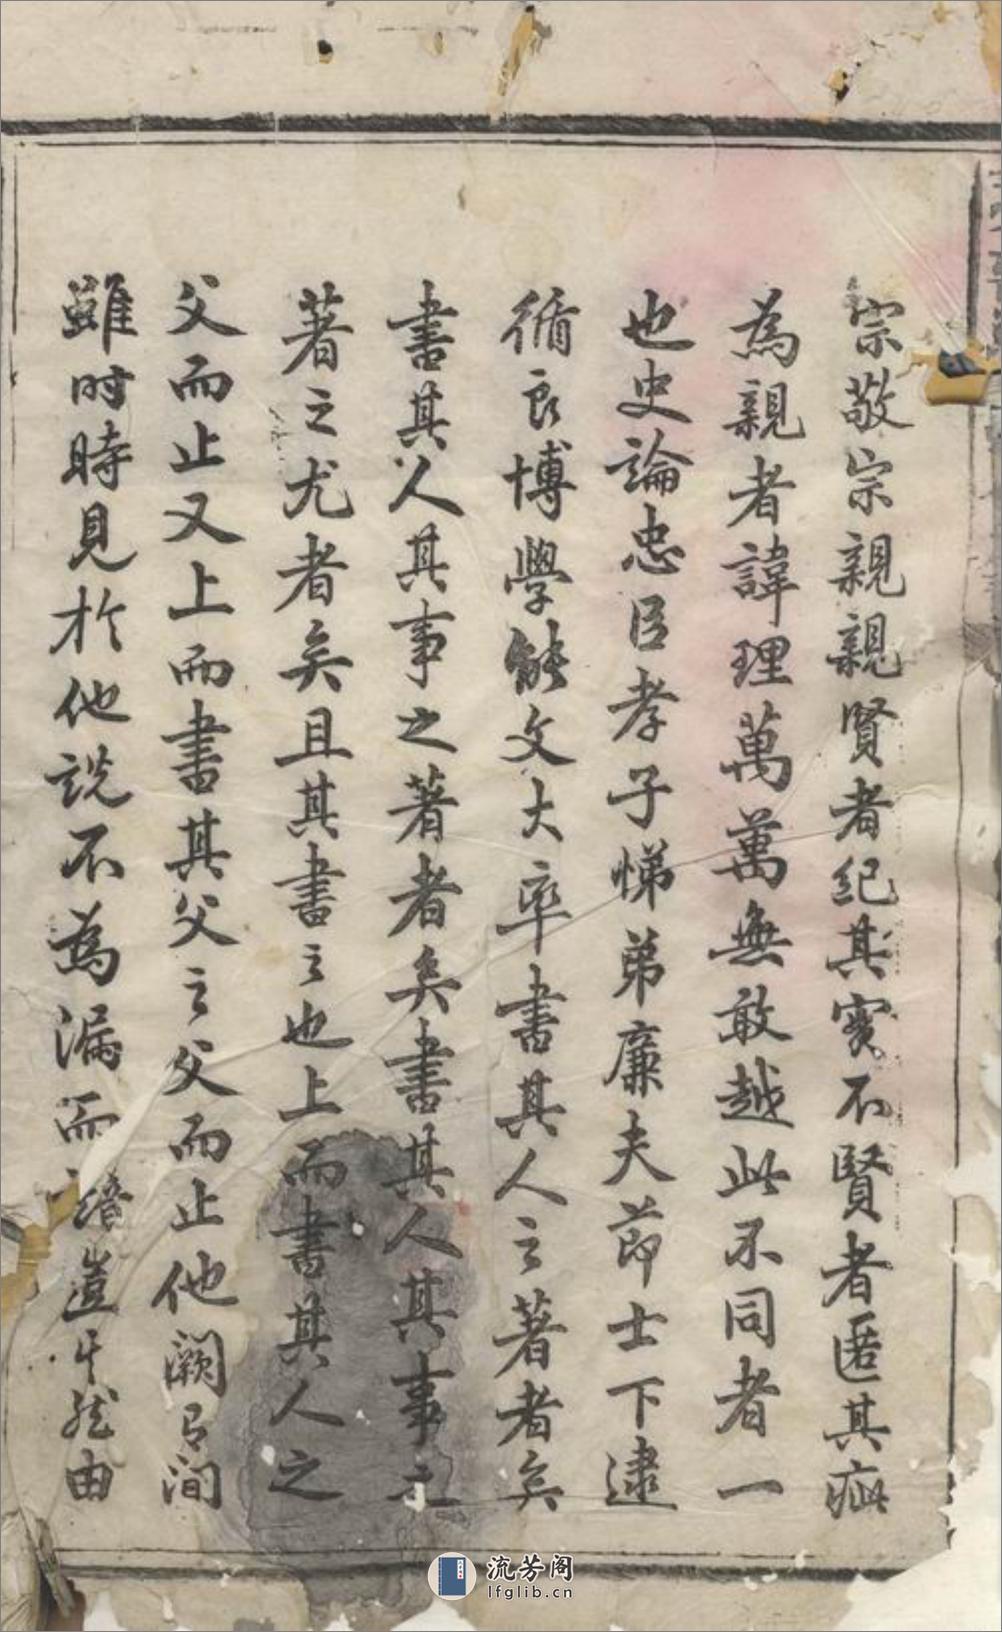 宗敬宗親親賢者紀其實不賢者匿其疵
為親者諱理萬萬無敢越此不同者一
也史論忠臣孝子悌弟廉夫節士下逮
循良博學能文大率書其人之著者矣
書其人其事之著者矣書其人其事之
著之尤者矣且其書之也上而書其人之
父而止又上而書其父之父而止他闕有間
雖时時見於他說不為漏而豈其然由
流芳阁
lfglib.cn